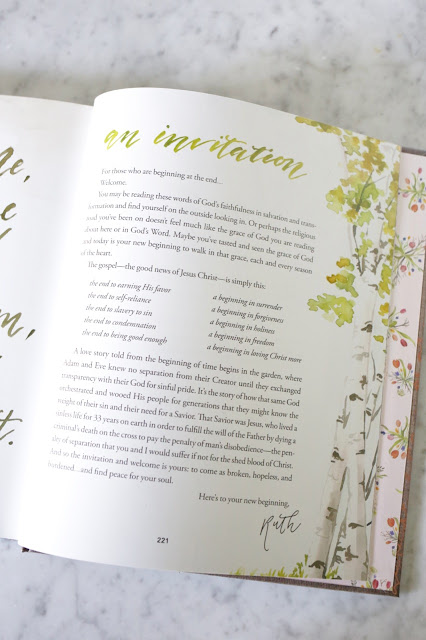 ne,
e
m,
t.
an invitation
For those who are beginning at the end...
Welcome.
You may be reading these words of God's faithfulness in salvation and trans-
formation and find yourself on the outside looking in. Or perhaps the religious
road you've been on doesn't feel much like the grace of God you are reading
about here or in God's Word. Maybe you've tasted and seen the grace of God
and today is your new beginning to walk in that grace, each and every season
of the heart.
The gospel—the good news of Jesus Christ—is simply this:
the end to earning His favor
the end to self-reliance
the end to slavery to sin
the end to condemnation
the end to being good enough
a beginning in surrender
a beginning in forgiveness
a beginning in holiness
a beginning in freedom
a beginning in loving Christ more
A love story told from the beginning of time begins in the garden, where
Adam and Eve knew no separation from their Creator until they exchanged
transparency with their God for sinful pride. It's the story of how that same God
orchestrated and wooed His people for generations that they might know the
weight of their sin and their need for a Savior. That Savior was Jesus, who lived a
sinless life for 33 years on earth in order to fulfill the will of the Father by dying a
criminal's death on the cross to pay the penalty of man's disobedience—the pen-
alty of separation that you and I would suffer if not for the shed blood of Christ.
And so the invitation and welcome is yours: to come as broken, hopeless, and
burdened...and find peace for your soul.
Here's to your new beginning,
Ruth
221